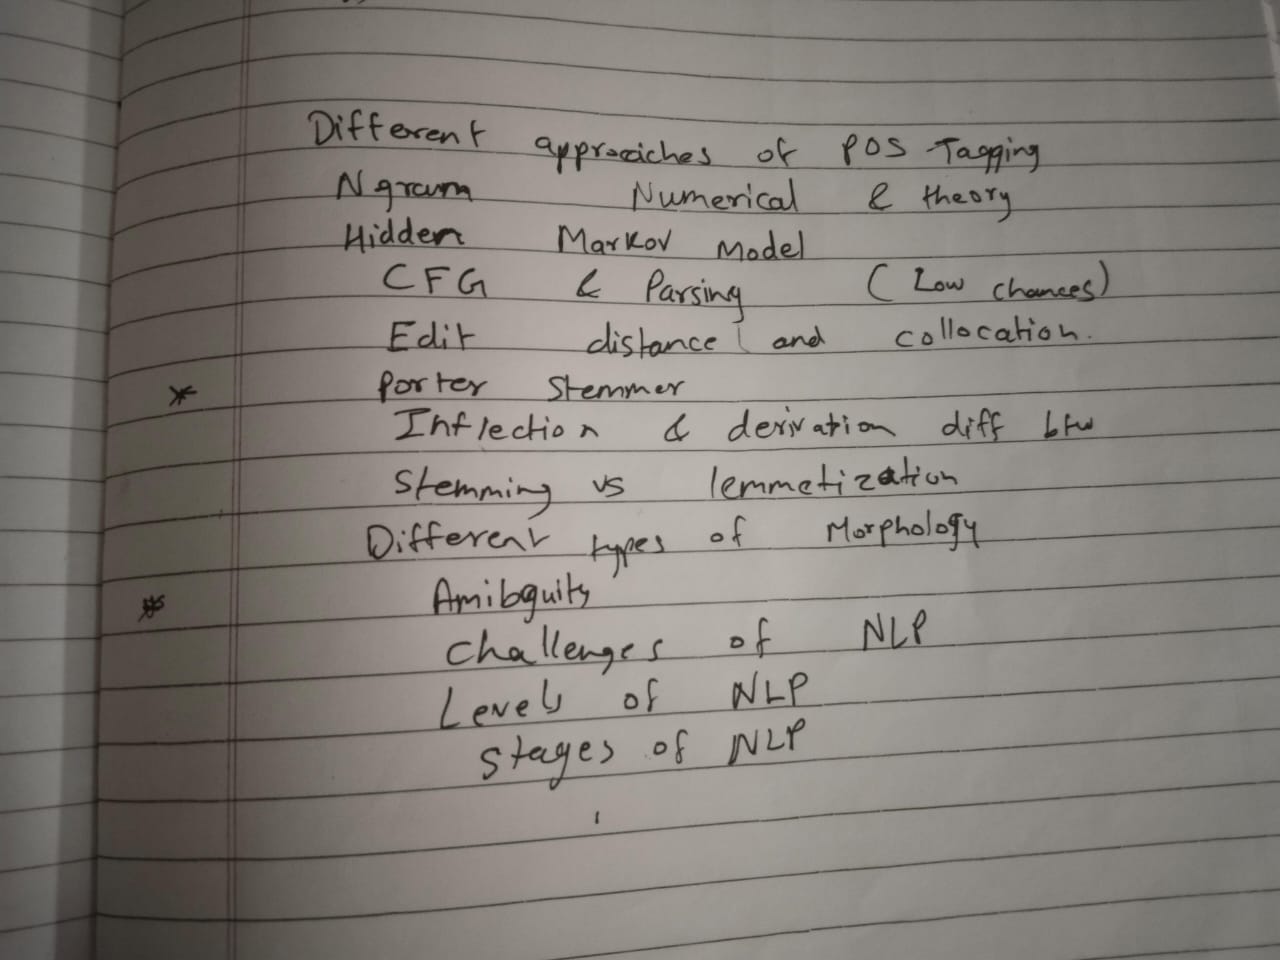 Different approaches of POS Tagging
Ngram Numerical & theory
Hidden Markov Model
CFG & Parsing (Low chances)
Edit distance and collocation.
* Porter Stemmer
Inflection & derivation diff btw
Stemming vs lemmetization
Different types of Morphology
* Amibguity
Challenges of NLP
Levels of NLP
Stages of NLP